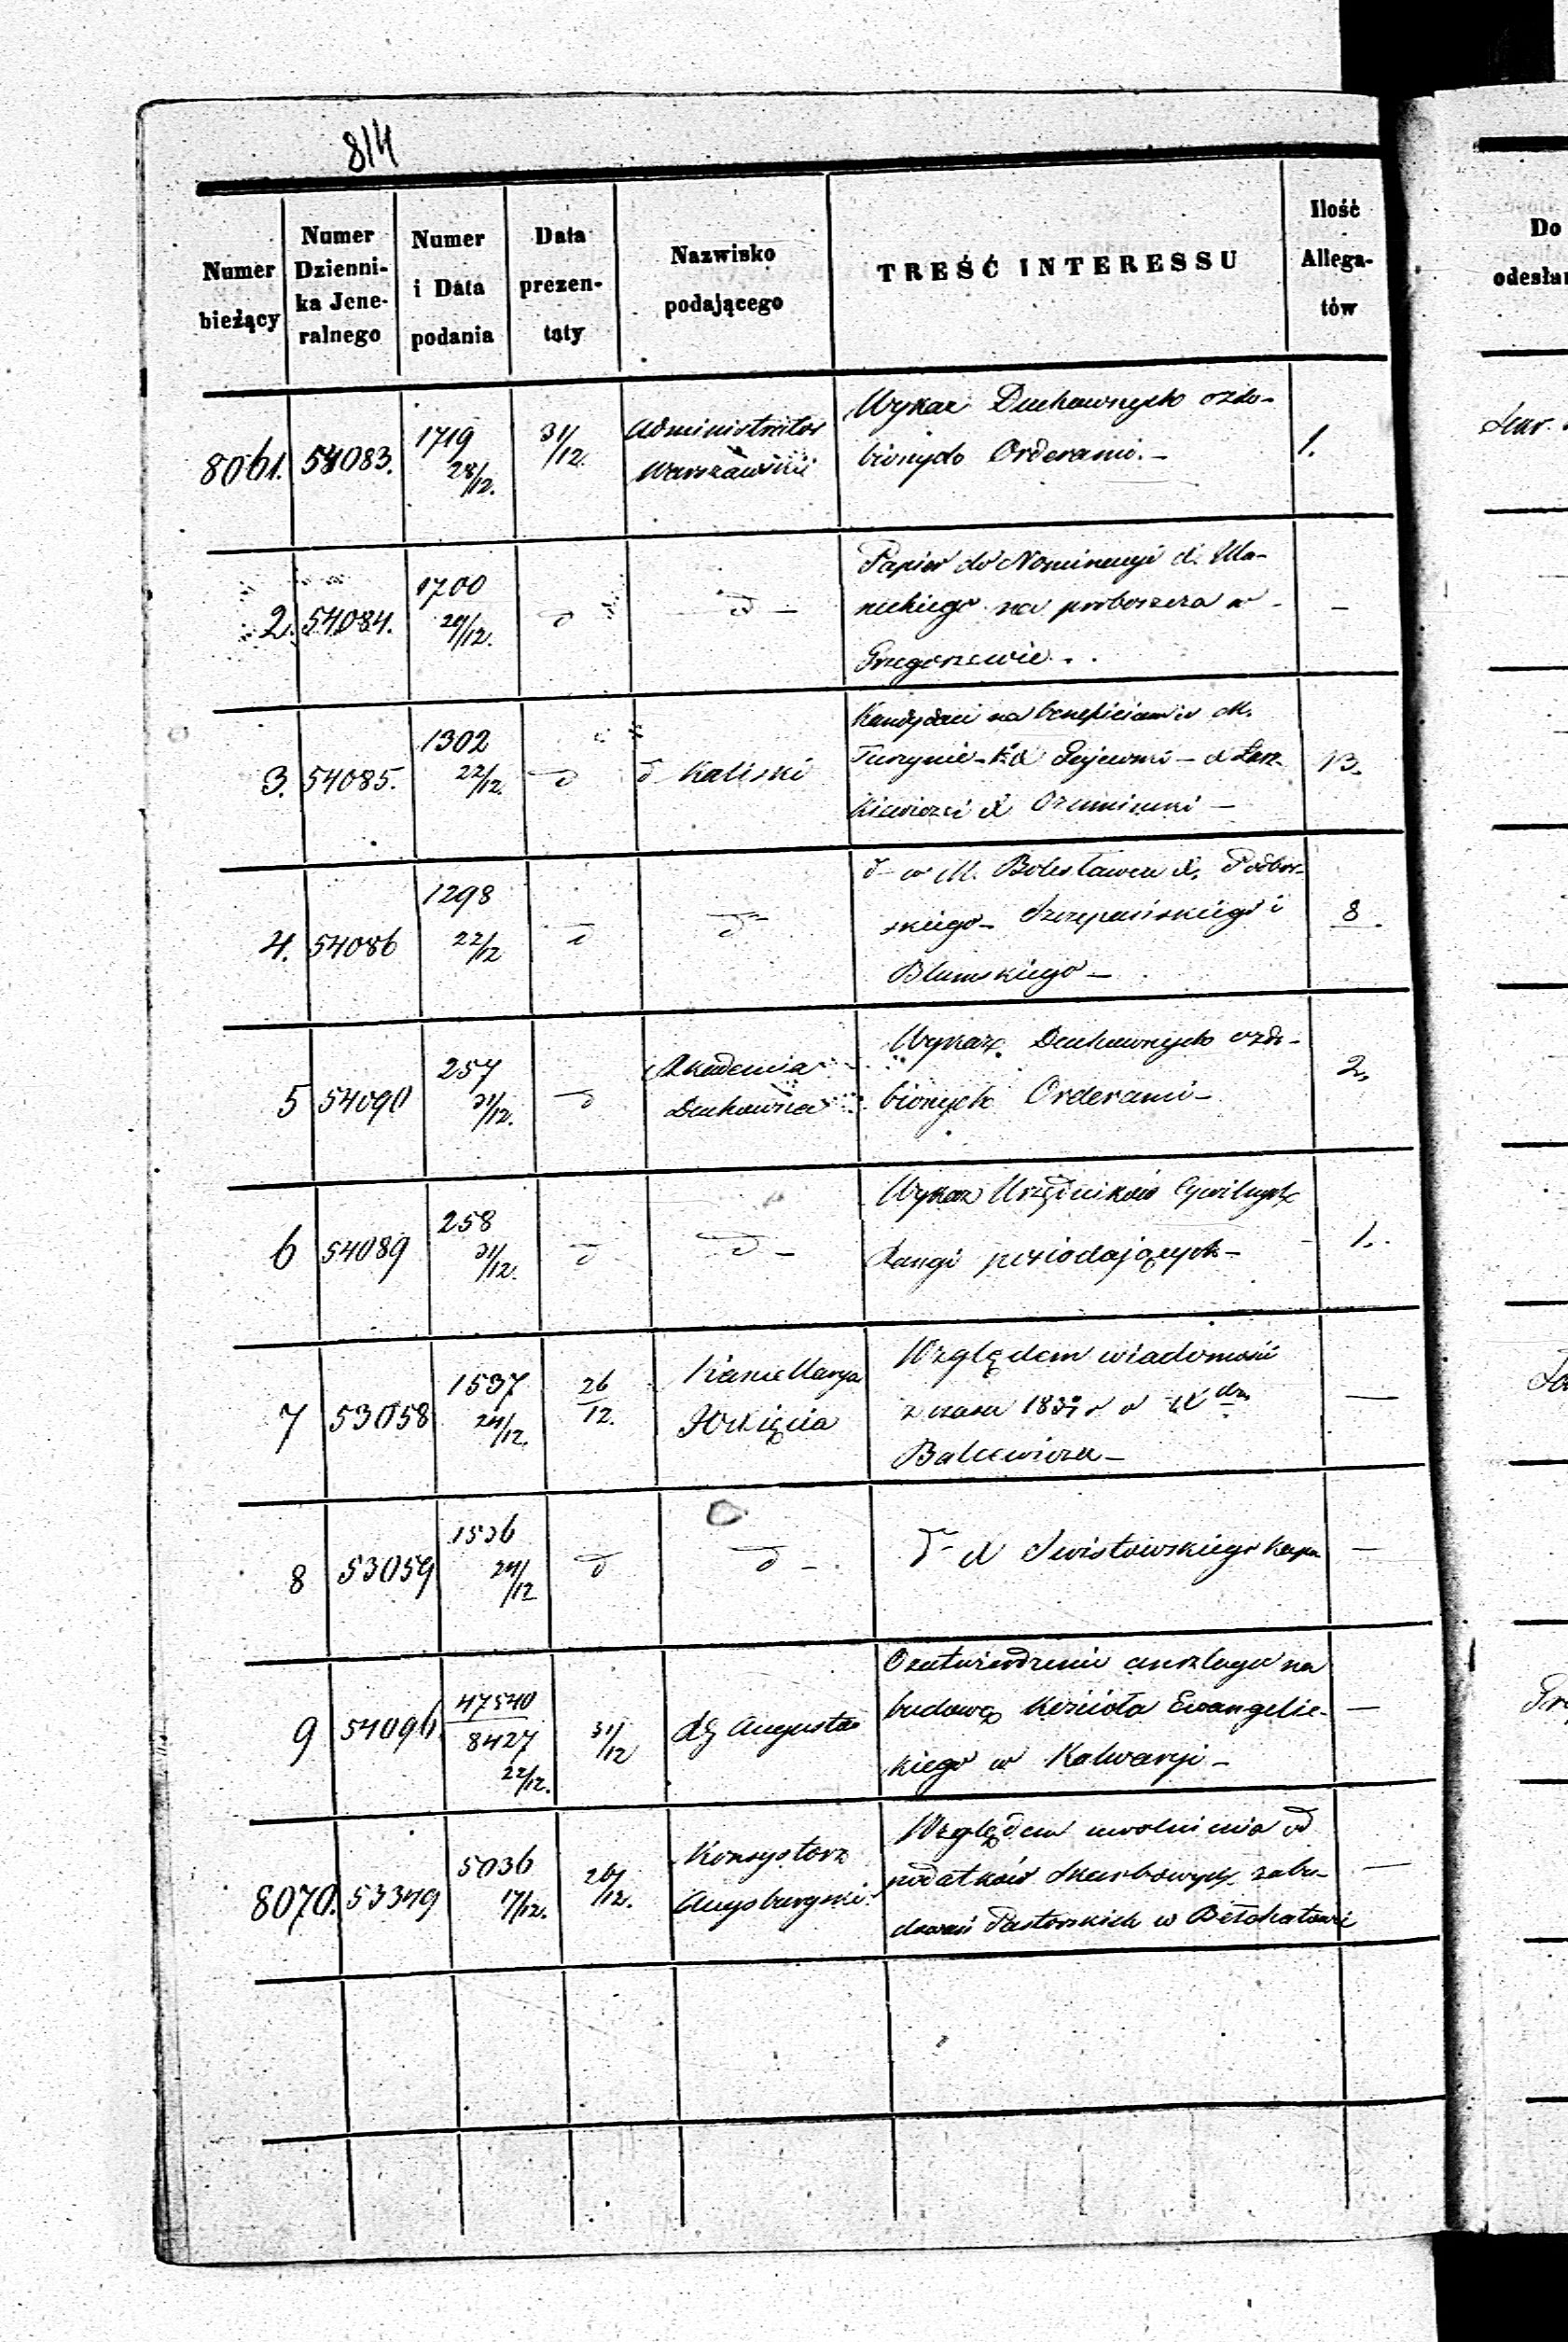 814
Numer bieżący
Numer Dzienni-ka Jene-ralnego
Numer i Data podania
Data prezen-taty
Nazwisko podającego
TREŚĆ INTERESSU
Ilość Allega-tów
Do
8061. 54083. 1719 28/12. 31/12. Administrator Warszawski
Wykaz Duchownych ozdo-
bionych Orderami. – 1.
2. 54084. 1700 20/12. d d –
Papier do Nominacyi
na proboszcza w –
Grzegorzewie. –
3. 54085. 1302 22/12. d d Kaliski
Kandydaci na beneficium w M.
Turzynie
13.
4. 54086 1298 22/12 d d
d – w M. Bolesławcu X.
skiego – Szczepasińskiego i 8.
Blumskiego –
5 54090 257 31/12. d Akademia Duchowna
Wykaz Duchownych ozdo-
bionych Orderami – 2.
6 54089 258 31/12. d d –
Wykaz Urzędników Cywilnych
Rangi posiadających – 1.
7 53058 1537 24/12. 26/12. Xięcia
Względem wiadomości
z czasu
Balcewicza –
8 53059 1536 24/12 d d –
d – X Swistowskiego –
9 54096 47540 8427 22/12. 31/12 Augustow
O zatwierdzenie anszlagu na
budowę Kościoła Ewangelic-
kiego w Kalwaryi –
8070. 53349 5036 17/12. 20/12. Konsystorz Augsburgski
Względem uwolnienia od
podatków Skarbowych zabu-
dowań Pastorskich w Bełchatowie